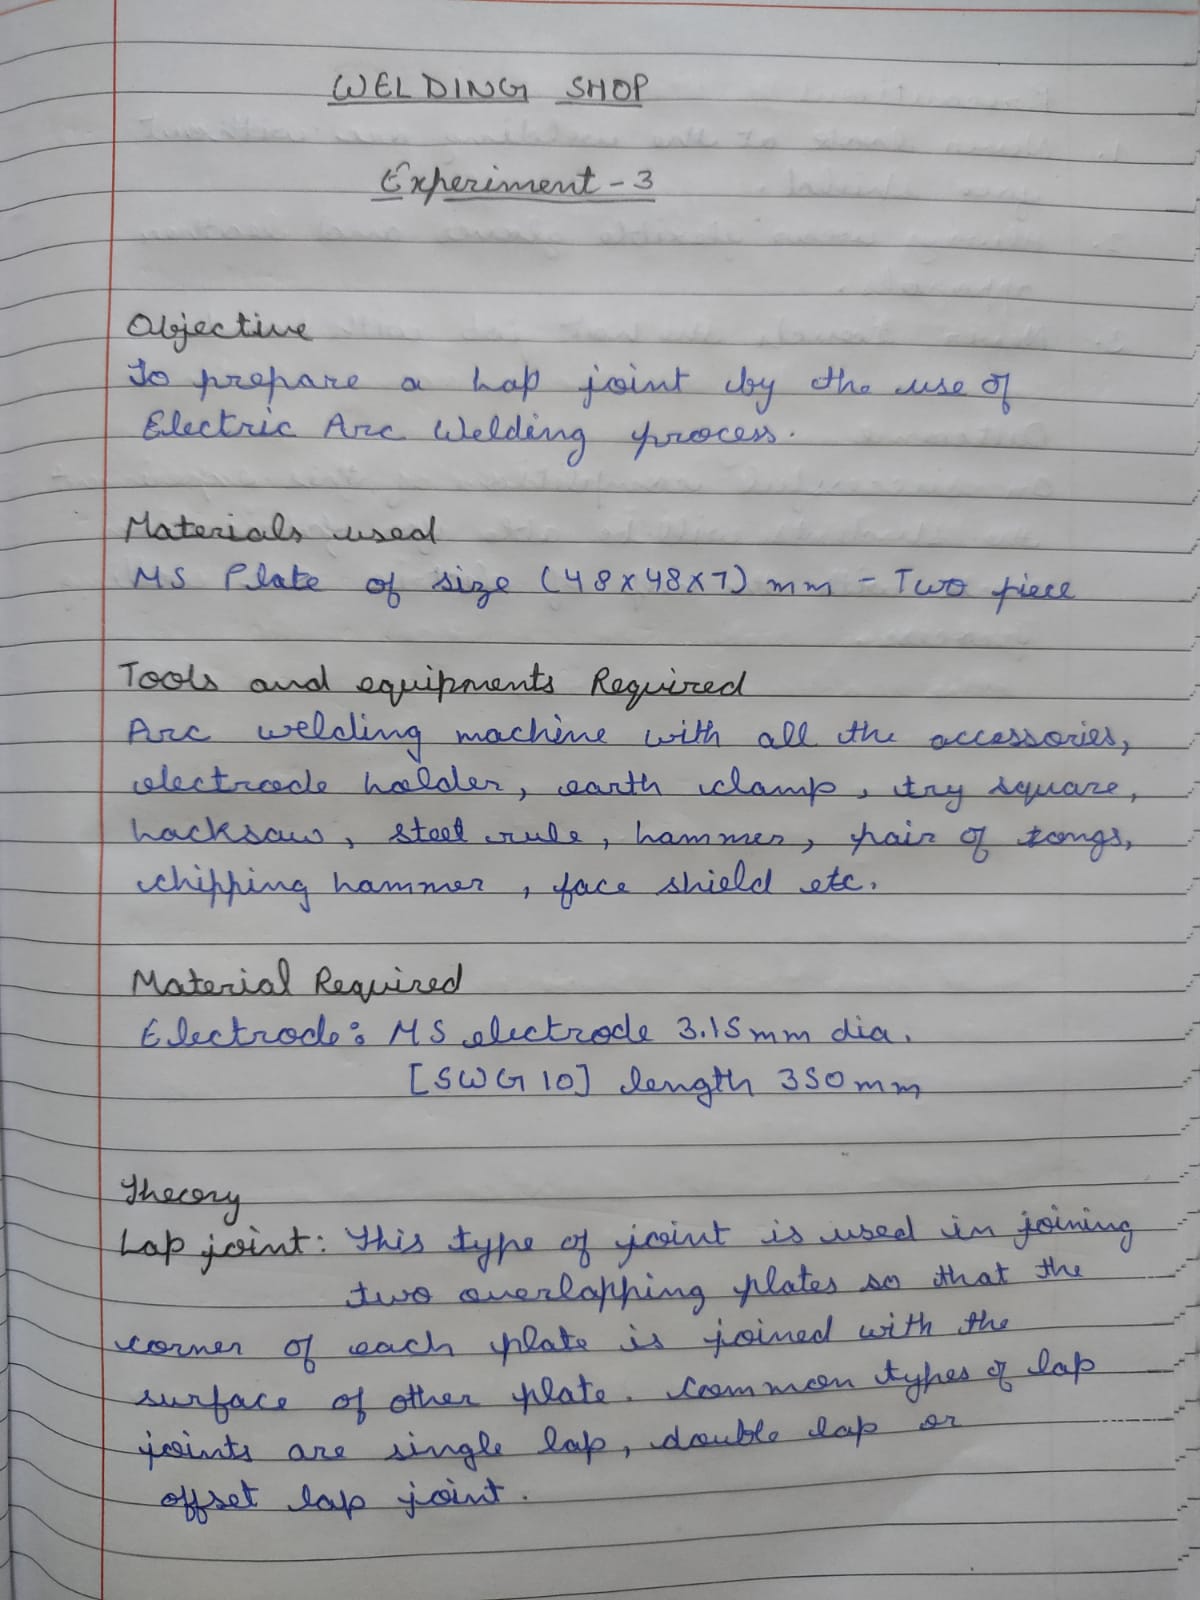 WELDING SHOP
Experiment - 3
Objective
To prepare a Lap joint by the use of
Electric Arc Welding process.
Materials used
MS Plate of size (48x48x7) mm - Two piece
Tools and equipments Required
Arc welding machine with all the accessories,
electrode holder, earth clamp, try square,
hacksaw, steel rule, hammer, pair of tongs,
chipping hammer, face shield etc.
Material Required
Electrode: MS electrode 3.15mm dia.
[SWG 10] length 350mm
Theory
Lap joint: This type of joint is used in joining
two overlapping plates so that the
corner of each plate is joined with the
surface of other plate. Common types of lap
joints are single lap, double lap or
offset lap joint.